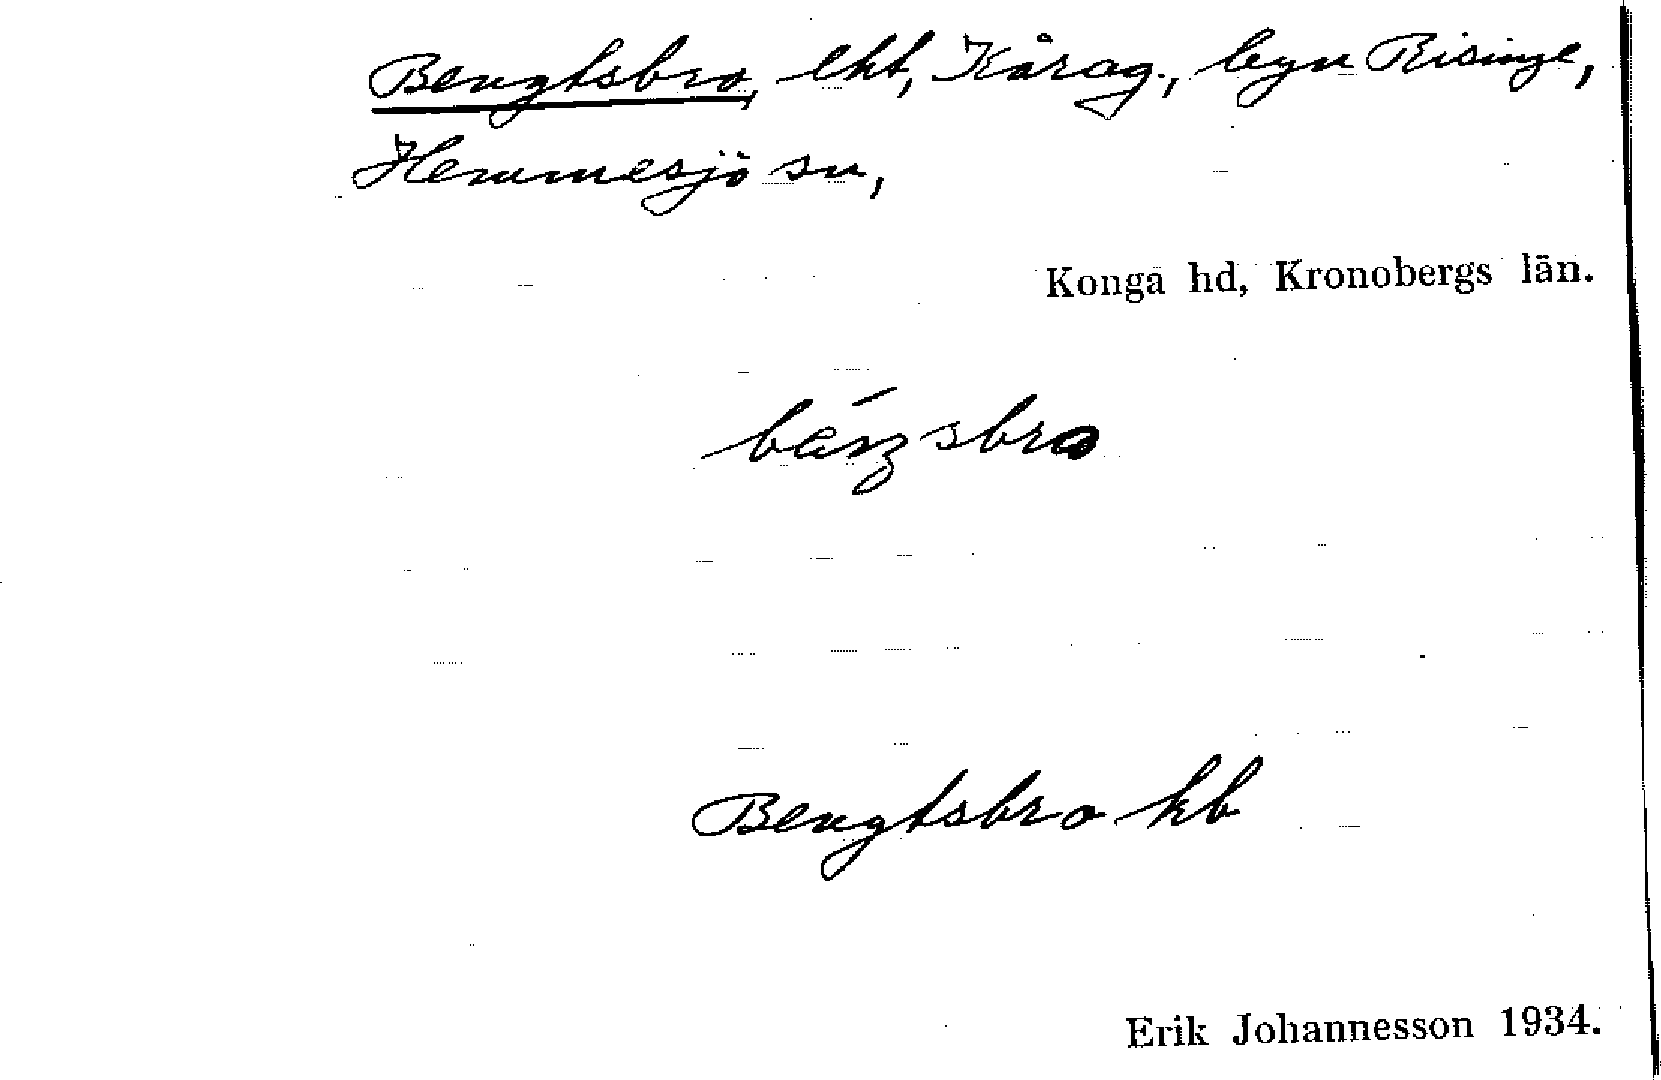 Bengtsbro, lht, Kårag., byn Risinge,
Hemmesjö sn,
Konga hd, Kronobergs län.
bäŋsbro
Bengtsbro kb
Erik Johannesson 1934.